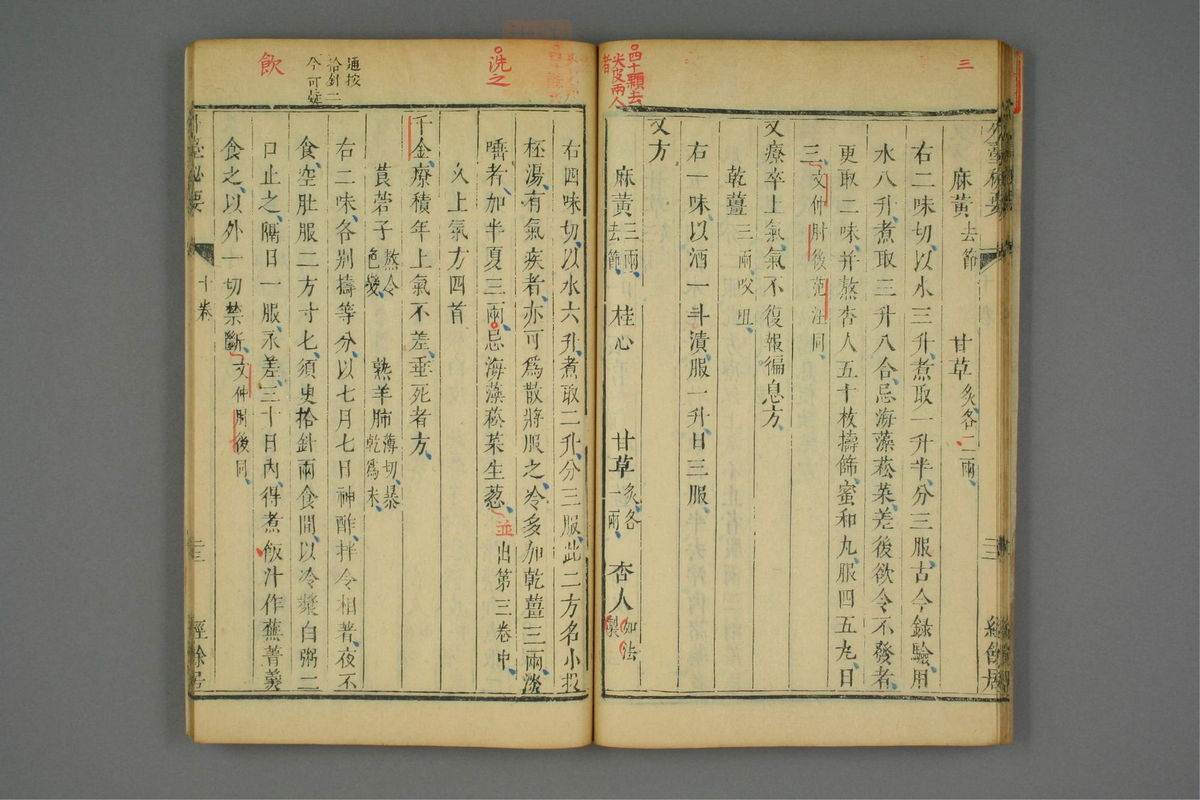 三
麻黃去節 甘草炙各二兩
右二味切以水三升煮取一升半分三服古今録驗用
水八升煮取三升八合忌海藻菘菜差後欲令不發者
更取二味并熬杏人五十枚擣篩蜜和丸服四五丸日
三文仲肘後范汪同
又療卒上氣氣不復報徧息方
乾薑三兩㕮咀
右一味以酒一斗漬服一升日三服
又方
四十顆去
尖皮兩人
者
麻黃三兩去節 桂心 甘草炙各一兩 杏人如法
右四味切以水六升煮取二升分三服此二方名小投
杯湯有氣疾者亦可爲散將服之冷多加乾薑三兩淡
洗之
嗜者加半夏三兩忌海藻菘菜生葱並出第三卷中
久上氣方四首
千金療積年上氣不差垂死者方
莨菪子熬令色變 熟羊肺薄切暴乾爲末
通按
拾針二
今可疑
右二味各别擣等分以七月七日神酢拌令相著夜不
食空肚服二方寸匕須臾拾針兩食間以冷漿白粥二
飲
口止之隔日一服永差三十日內得煮飯汁作蕪菁羹
食之以外一切禁斷文仲肘後同
外臺秘要
十卷
經餘居